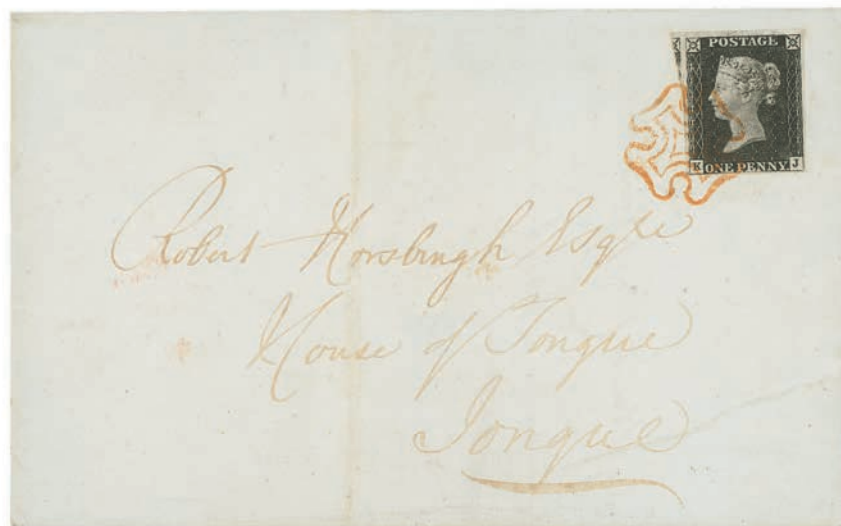 POSTAGE
K ONE PENNY J
Robert Horsbrugh Esqre
House of Tongue
Tongue